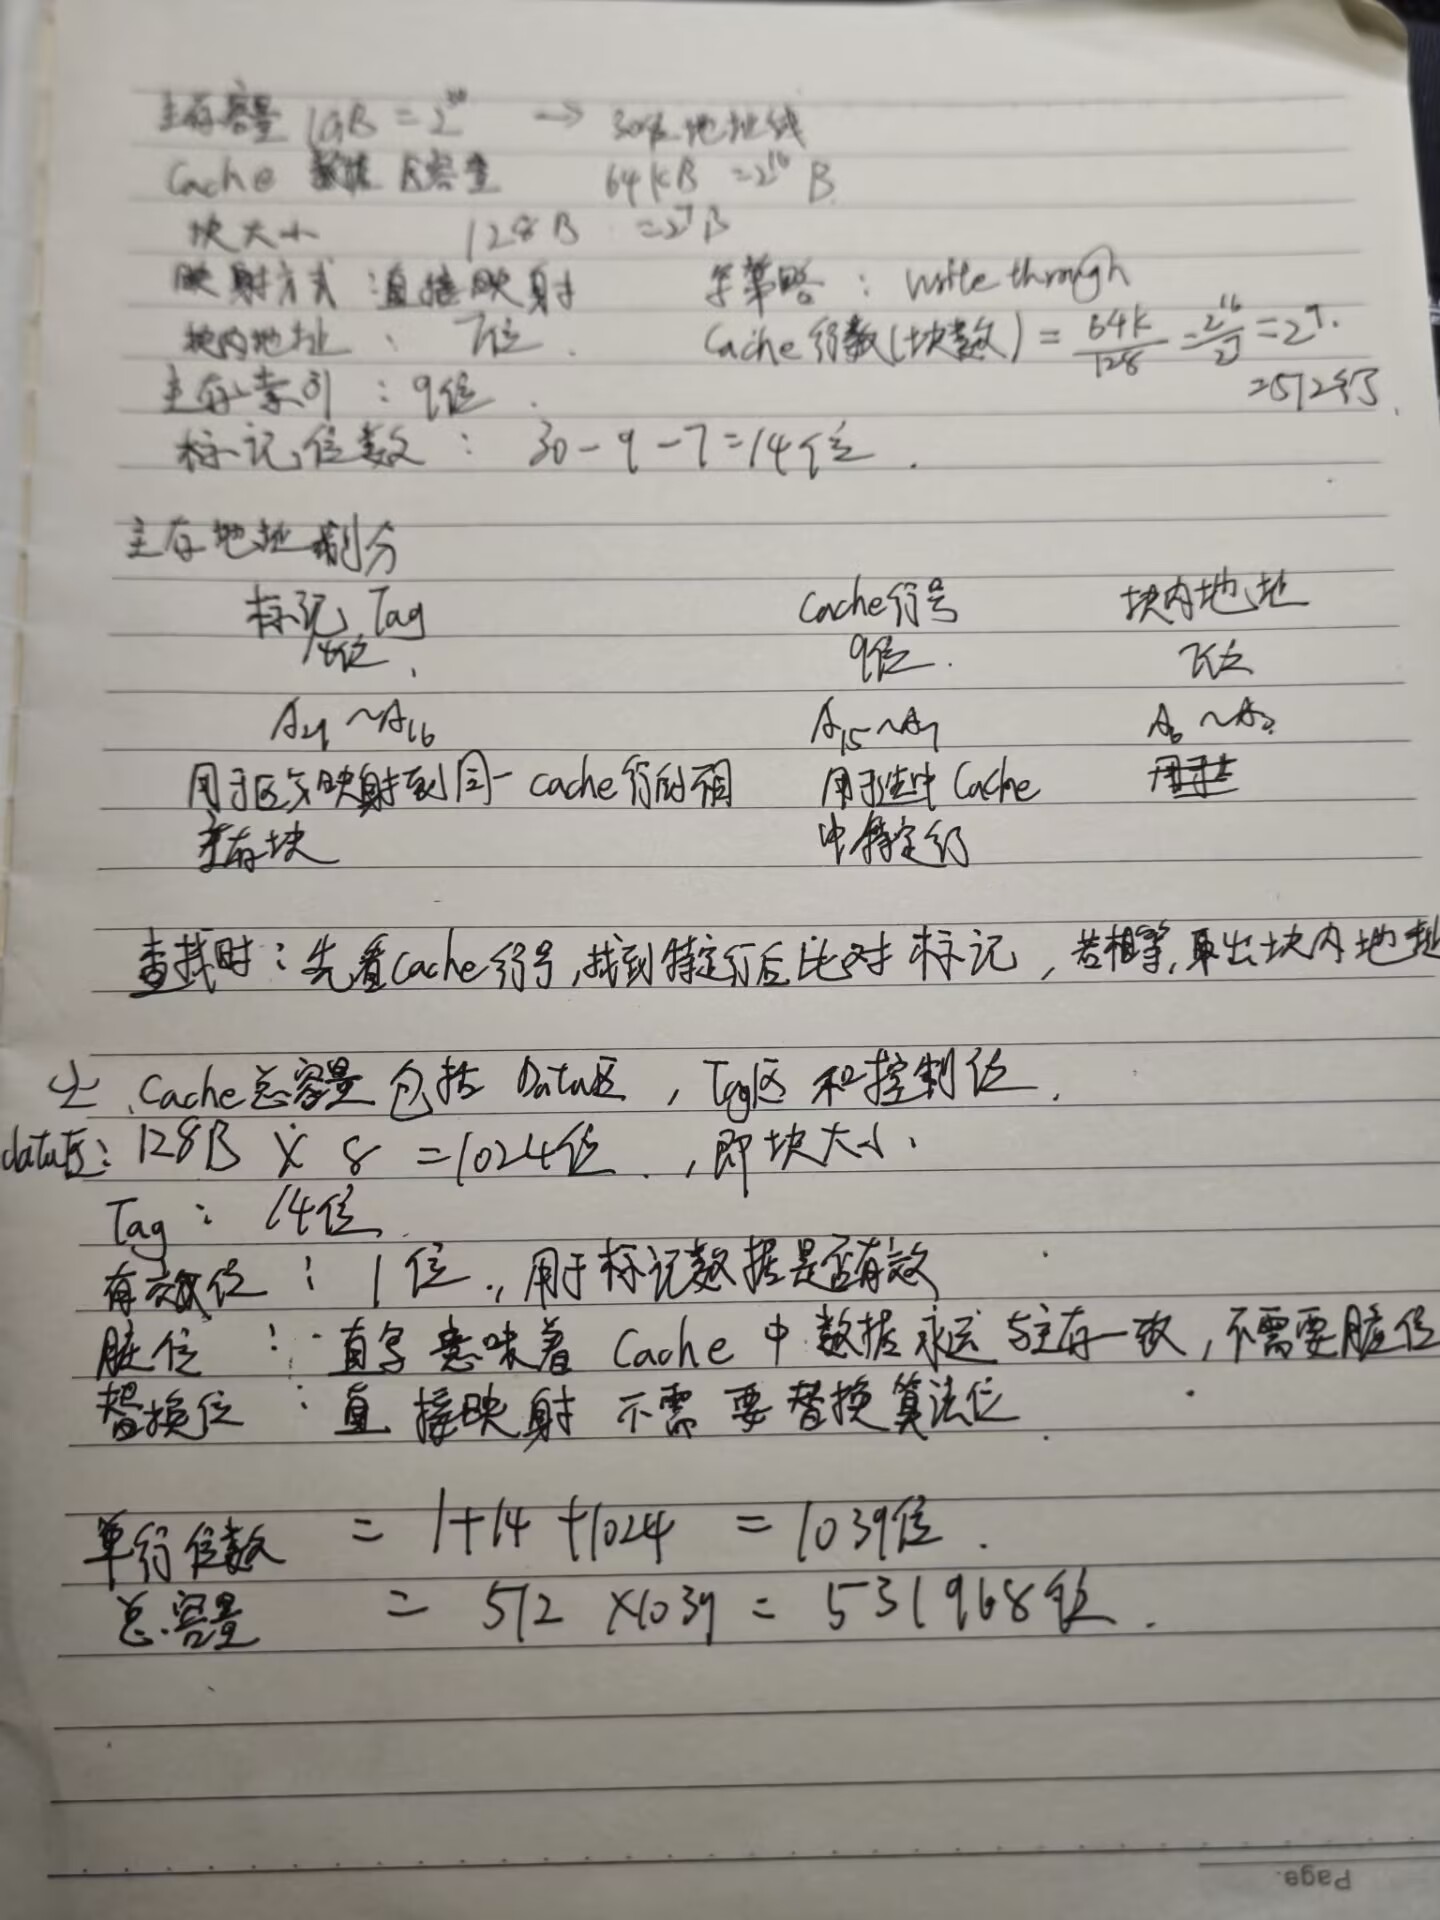 主存容量 1GB = 2³⁰ → 30根地址线
Cache 数据区容量 64KB = 2¹⁶ B
块大小 128B = 2⁷B
映射方式：直接映射 写策略：write through
块内地址：7位. Cache行数(块数) = 64K/128 = 2¹⁶/2⁷ = 2⁹.
=512行.
主存索引：9位.
标记位数：30-9-7=14位.
主存地址划分
标记 Tag Cache行号 块内地址
14位. 9位. 7位
A₂₉~A₁₆ A₁₅~A₇ A₆~A₀
用于区分映射到同一cache行的不同 用于选中Cache 用于
主存块 中特定行
查找时：先看Cache行号,找到特定行后比对标记,若相等,取出块内地址
Cache总容量包括Data区,Tag区和控制位.
data区：128B × 8 = 1024位.,即块大小.
Tag：14位.
有效位：1位.,用于标记数据是否有效
脏位：直写意味着Cache中数据永远与主存一致,不需要脏位
替换位：直接映射不需要替换算法位.
单行位数 = 1+14+1024 = 1039位.
总容量 = 512×1039 = 531968位.
Page.